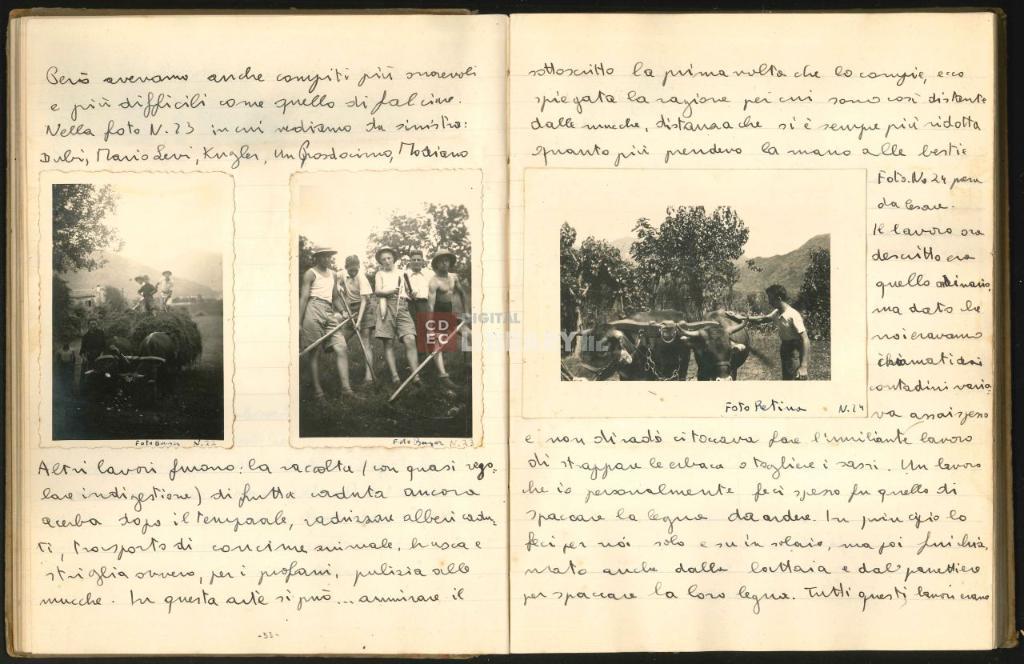 Però avevamo anche compiti più onorevoli
e più difficili come quello di falciare.
Nella foto N. 23 in cui vediamo da sinistra:
Dubi, Mario Levi, Kugler, un Prosdocimo, Modiano
Foto N. 22
Foto N. 23
Altri lavori furono: la raccolta (con quasi rego-
lare indigestione) di frutta caduta ancora
acerba dopo il temporale, radrizzare alberi cadu-
ti, trasporto di concime animale, brusca e
striglia ovvero, per i profani, pulizia alle
mucche. In questa arte si può... ammirare il
-33-
sottoscritto la prima volta che lo compie, ecco
spiegata la ragione per cui sono così distante
dalle mucche, distanza che si è sempre più ridotta
quanto più prendevo la mano alle bestie
Foto. No 24 presa
da Cesare.
Il lavoro ora
descritto era
quello ordinario,
ma dato che
noi eravamo
chiamati dai
contadini varia-
va assai spesso
Foto Retina N. 24
e non di rado ci toccava fare l'umiliante lavoro
di strappare le erbacce o togliere i sassi. Un lavoro
che io personalmente feci spesso fu quello di
spaccare la legna da ardere. In principio lo
feci per noi solo e su in solaio, ma poi fui chia-
mato anche dalla lattaia e dal panettiere
per spaccare la loro legna. Tutti questi lavori erano
CD
EC
DIGITAL
LIBRARY